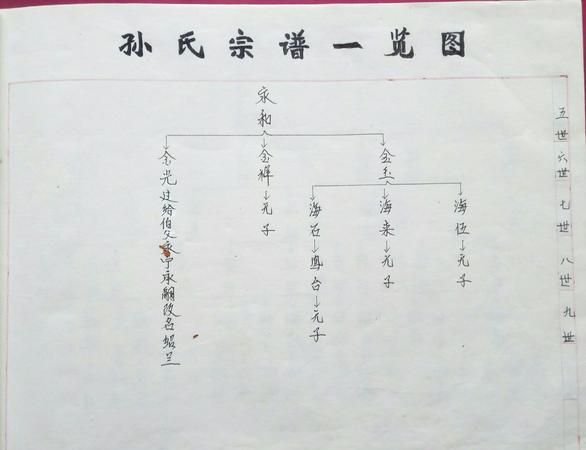 孙氏宗谱一览图
五世
六世
七世
八世
九世
永和
金玉
金祥
无子
金光过给伯父永宁承嗣改名绍兰
海伍
无子
海来
无子
海石
鳳台
无子